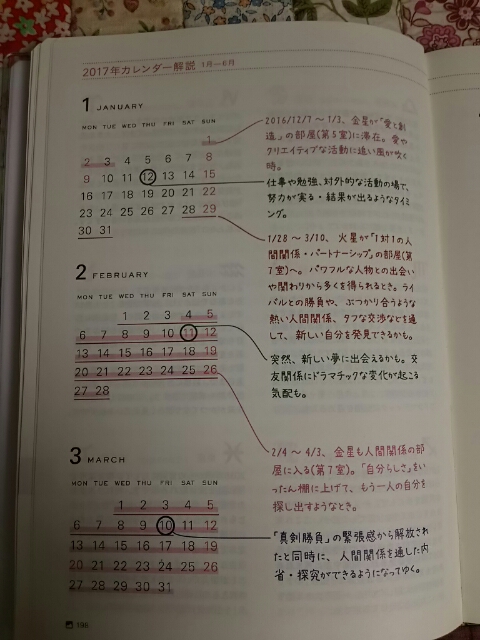 2017年カレンダー解説 1月—6月
1 JANUARY
MON TUE WED THU FRI SAT SUN
1
2 3 4 5 6 7 8
9 10 11 12 13 14 15
16 17 18 19 20 21 22
23 24 25 26 27 28 29
30 31
2016/12/7 〜 1/3、金星が「愛と創
造」の部屋(第5室)に滞在。愛や
クリエイティブな活動に追い風が吹く
時。
仕事や勉強、対外的な活動の場で、
努力が実る・結果が出るようなタイミ
ング。
1/28 〜 3/10、火星が「1対1の人
間関係・パートナーシップ」の部屋(第
7室)へ。パワフルな人物との出会い
や関わりから多くを得られるとき。ライ
バルとの勝負や、ぶつかり合うような
熱い人間関係、タフな交渉などを通
して、新しい自分を発見できるかも。
2 FEBRUARY
MON TUE WED THU FRI SAT SUN
1 2 3 4 5
6 7 8 9 10 11 12
13 14 15 16 17 18 19
20 21 22 23 24 25 26
27 28
突然、新しい夢に出会えるかも。交
友関係にドラマチックな変化が起こる
気配も。
2/4 〜 4/3、金星も人間関係の部
屋に入る(第7室)。「自分らしさ」をい
ったん棚に上げて、もう一人の自分を
探し出すようなとき。
3 MARCH
MON TUE WED THU FRI SAT SUN
1 2 3 4 5
6 7 8 9 10 11 12
13 14 15 16 17 18 19
20 21 22 23 24 25 26
27 28 29 30 31
「真剣勝負」の緊張感から解放され
たと同時に、人間関係を通した内
省・探究ができるようになってゆく。